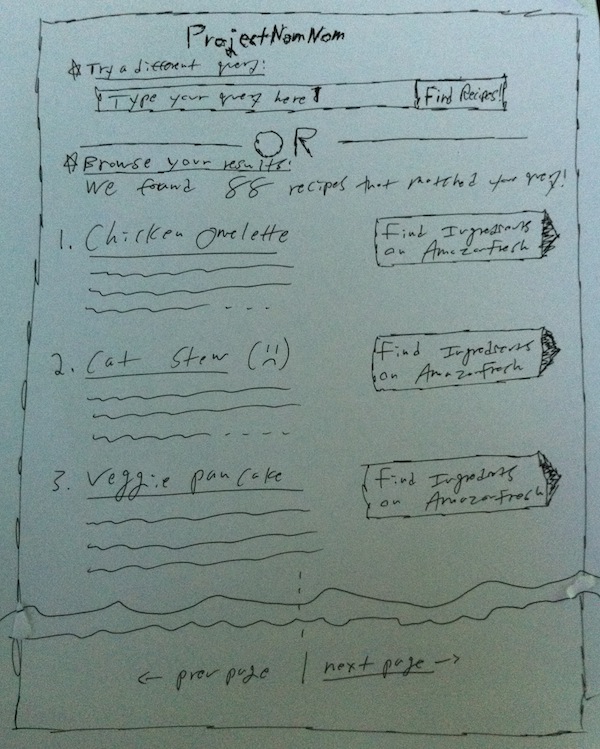 ProjectNomNom
☆ Try a different query:
Type your query here
Find Recipes!
OR
☆ Browse your results:
We found 88 recipes that matched your query!
1. Chicken Omelette
Find Ingredients
on AmazonFresh
2. Cat Stew (:()
Find Ingredients
on AmazonFresh
3. Veggie pancake
Find Ingredients
on AmazonFresh
← prev page | next page →